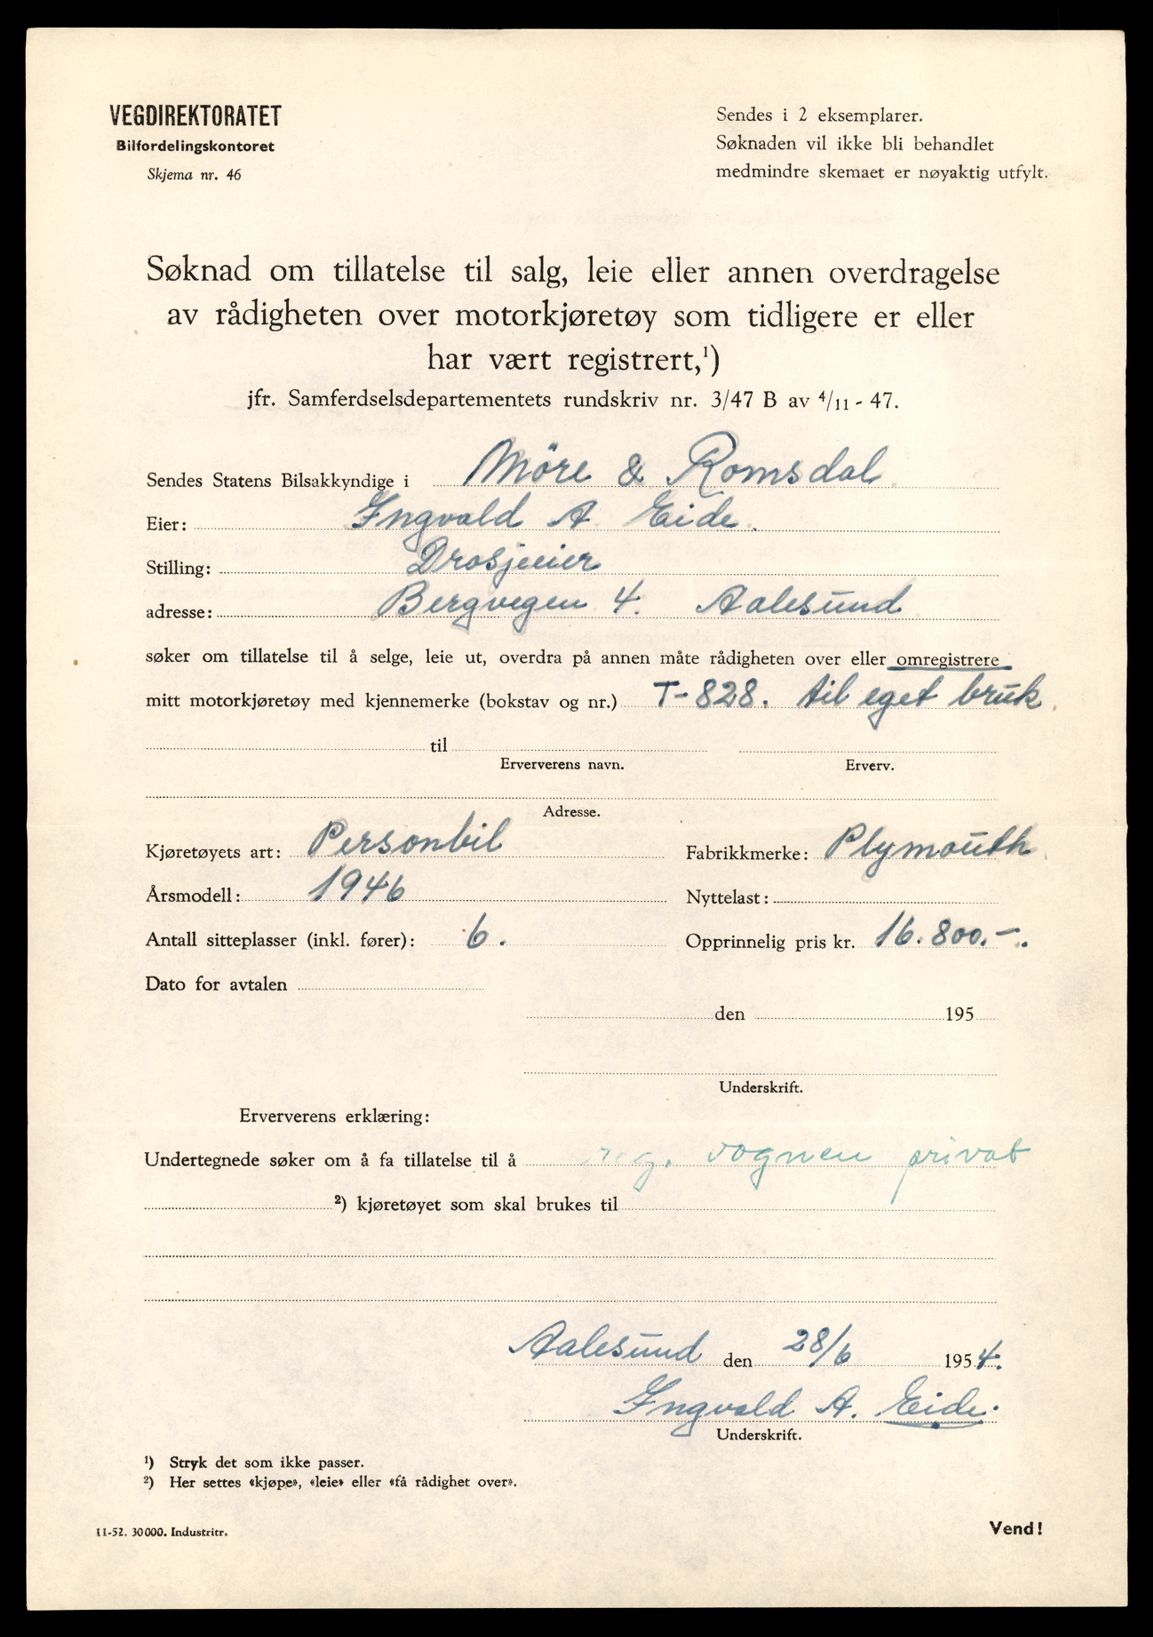 VEGDIREKTORATET
Bilfordelingskontoret
Skjema nr. 46
Sendes i 2 eksemplarer.
Søknaden vil ikke bli behandlet
medmindre skemaet er nøyaktig utfylt.
Søknad om tillatelse til salg, leie eller annen overdragelse
av rådigheten over motorkjøretøy som tidligere er eller
har vært registrert,¹)
jfr. Samferdselsdepartementets rundskriv nr. 3/47 B av 4/11 - 47.
Sendes Statens Bilsakkyndige i Möre & Romsdal
Eier: Ingvald A Eide.
Stilling: Drosjeeier
adresse: Bergvegen 4. Aalesund
søker om tillatelse til å selge, leie ut, overdra på annen måte rådigheten over eller omregistrere
mitt motorkjøretøy med kjennemerke (bokstav og nr.) T-828. til eget bruk.
til
Erververens navn. Erverv.
Adresse.
Kjøretøyets art: Personbil Fabrikkmerke: Plymouth
Årsmodell: 1946 Nyttelast:
Antall sitteplasser (inkl. fører): 6. Opprinnelig pris kr. 16.800.-.
Dato for avtalen
den 195
Underskrift.
Erververens erklæring:
Undertegnede søker om å fa tillatelse til å reg. vognen privat
²) kjøretøyet som skal brukes til
Aalesund den 28/6 1954.
Ingvald A. Eide.
Underskrift.
¹) Stryk det som ikke passer.
²) Her settes «kjøpe», «leie» eller «få rådighet over».
11-52. 30000. Industritr.
Vend!